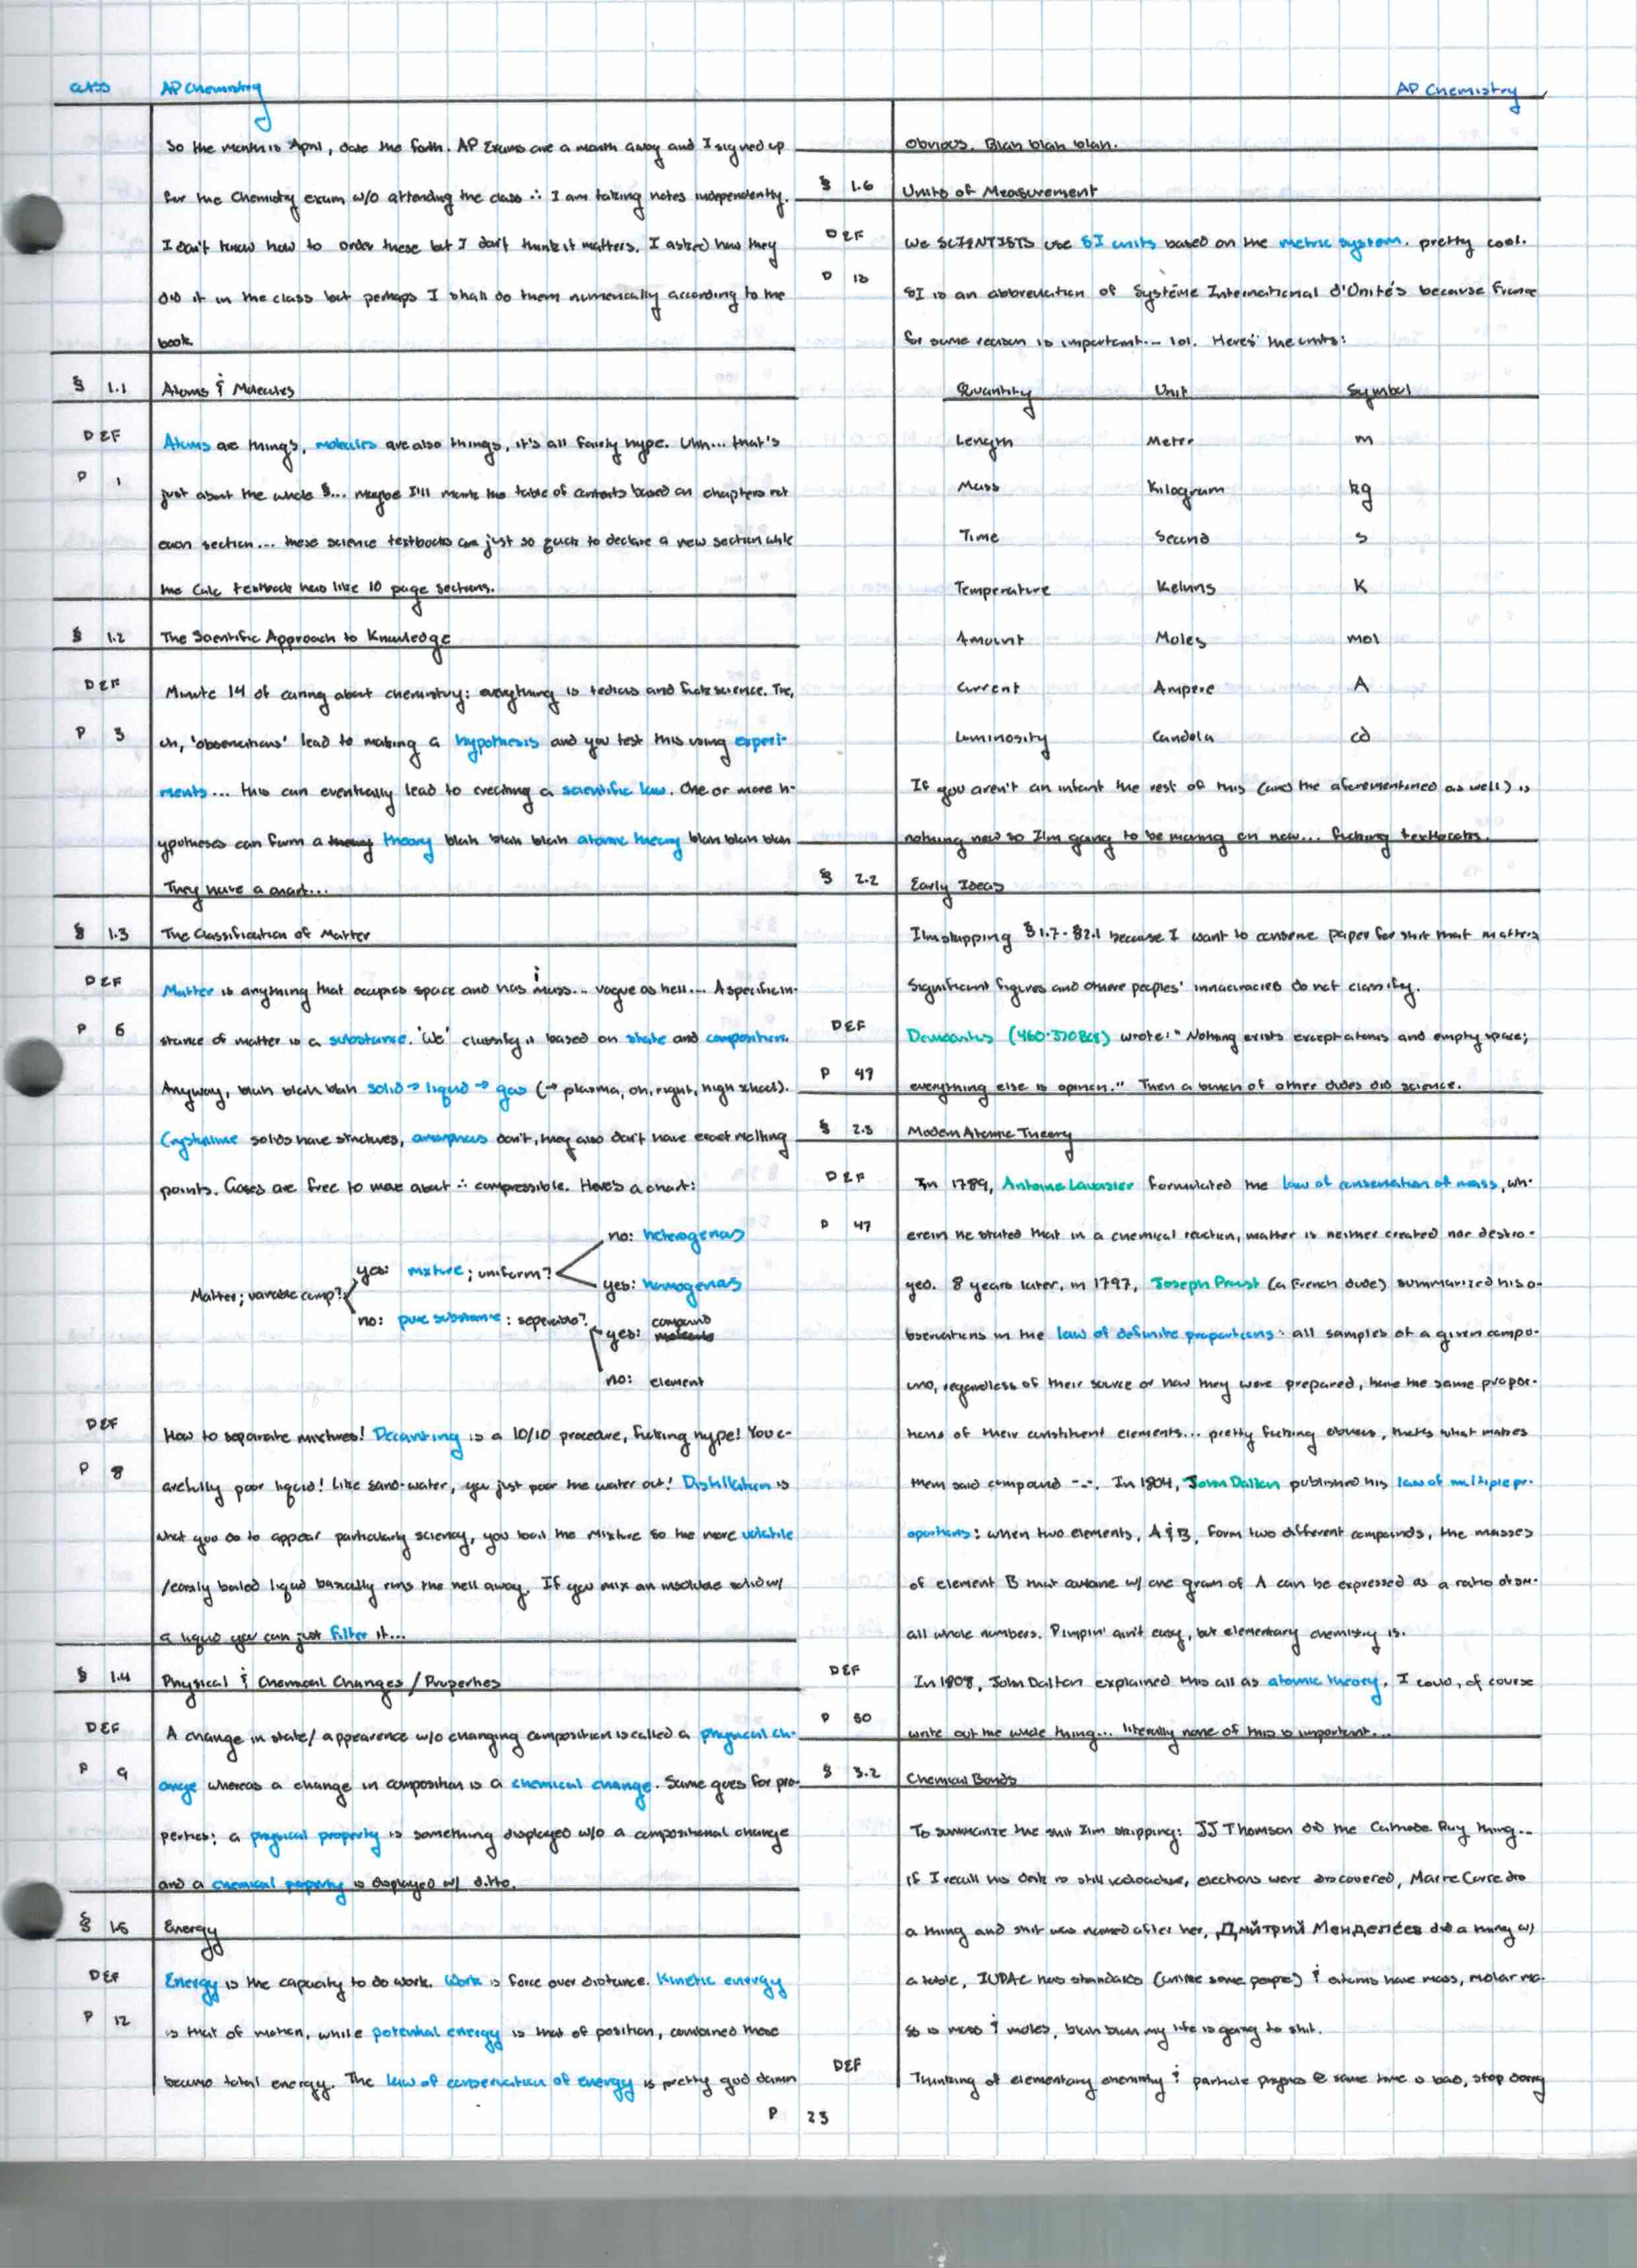 CLASS AP Chemistry
So the month is April, date the forth. AP Exams are a month away and I signed up
for the Chemistry exam w/o attending the class ∴ I am taking notes independently.
I don't know how to order these but I don't think it matters. I asked how they
did it in the class but perhaps I shall do them numerically according to the
book
§ 1.1 Atoms & Molecules
DEF Atoms are things, molecules are also things, it's all fairly hype. Uhh... that's
P 1 just about the whole §... maybe I'll make the table of contents based on chapters not
each section... these science textbooks are just so quick to declare a new section while
the Calc textbook has like 10 page sections.
§ 1.2 The Scientific Approach to Knowledge
DEF Minute 14 of caring about chemistry: everything is tedious and fuck science. The,
P 3 uh, 'observations' lead to making a hypothesis and you test this using experi-
ments... this can eventually lead to creating a scientific law. One or more h-
ypotheses can form a theory blah blah blah atomic theory blah blah blah
They have a chart...
§ 1.3 The Classification of Matter
DEF Matter is anything that occupies space and has mass... vague as hell... A specific in-
P 5 stance of matter is a substance. 'We' classify it based on state and composition.
Anyway, blah blah blah solid → liquid → gas (→ plasma, oh, right, high school).
Crystalline solids have structures, amorphous don't, they also don't have exact melting
points. Gases are free to move about ∴ compressible. Here's a chart:
no: heterogenous
yes: mixture; uniform?
yes: homogenous
Matter; variable comp?
no: pure substance: seperable?
compound
yes:
no: element
DEF How to separate mixtures! Decanting is a 10/10 procedure, fucking hype! You c-
P 8 arefully poor liquid! Like sand-water, you just poor the water out! Distillation is
what you do to appear particularly sciency, you boil the mixture so the more volatile
/easily boiled liquid basically runs the hell away. If you mix an insoluble solid w/
a liquid you can just filter it...
§ 1.4 Physical & Chemical Changes / Properties
DEF A change in state/ appearence w/o changing composition is called a physical ch-
P 9 ange whereas a change in composition is a chemical change. Same goes for pro-
perties: a physical property is something displayed w/o a compositional change
and a chemical property is displayed w/ ditto.
§ 1.5 Energy
DEF Energy is the capacity to do work. Work is force over distance. Kinetic energy
P 12 is that of motion, while potential energy is that of position, combined these
become total energy. The law of conservation of energy is pretty god damn
AP Chemistry
obvious. Blah blah blah.
§ 1.6 Units of Measurement
DEF We SCIENTISTS use SI units based on the metric system. pretty cool.
P 13 SI is an abbreviation of Système International d'Unités because France
for some reason is important... lol. Here's the units:
Quantity Unit Symbol
Length Meter m
Mass Kilogram kg
Time Second s
Temperature Kelvins K
Amount Moles mol
Current Ampere A
Luminosity Candela cd
If you aren't an infant the rest of this (and the aforementioned as well) is
nothing new so I'm going to be moving on now... fucking textbooks.
§ 2.2 Early Ideas
I'm skipping § 1.7 - § 2.1 because I want to conserve paper for shit that matters
Significant figures and other peoples' innacuracies do not classify.
DEF Democritus (460-370 BCE) wrote: "Nothing exists except atoms and empty space;
P 47 everything else is opinion." Then a bunch of other dudes did science.
§ 2.3 Modern Atomic Theory
DEF In 1789, Antoine Lavoisier formulated the law of conservation of mass, wh-
P 47 erein he stated that in a chemical reaction, matter is neither created nor destro-
yed. 8 years later, in 1797, Joseph Proust (a French dude) summarized his o-
bservations in the law of definite proportions: all samples of a given compo-
und, regardless of their source or how they were prepared, have the same propor-
tions of their constituent elements... pretty fucking obvious, thats what makes
them said compound -.-. In 1804, John Dalton published his law of multiple pr-
oportions: when two elements, A & B, form two different compounds, the masses
of element B that combine w/ one gram of A can be expressed as a ratio of sm-
all whole numbers. Pimpin' ain't easy, but elementary chemistry is.
DEF In 1808, John Dalton explained this all as atomic theory, I could, of course
P 50 write out the whole thing... literally none of this is important...
§ 3.2 Chemical Bonds
To summarize the shit I'm skipping: JJ Thomson did the Cathode Ray thing...
if I recall his desk is still radioactive, electrons were discovered, Marie Curie did
a thing and shit was named after her, Дмйтрий Менделéев did a thing w/
a table, IUPAC has standards (unlike some people) & atoms have mass, molar ma-
ss is mass & moles, blah blah my life is going to shit.
DEF Thinking of elementary chemistry & particle physics @ same time is bad, stop doing
P 23